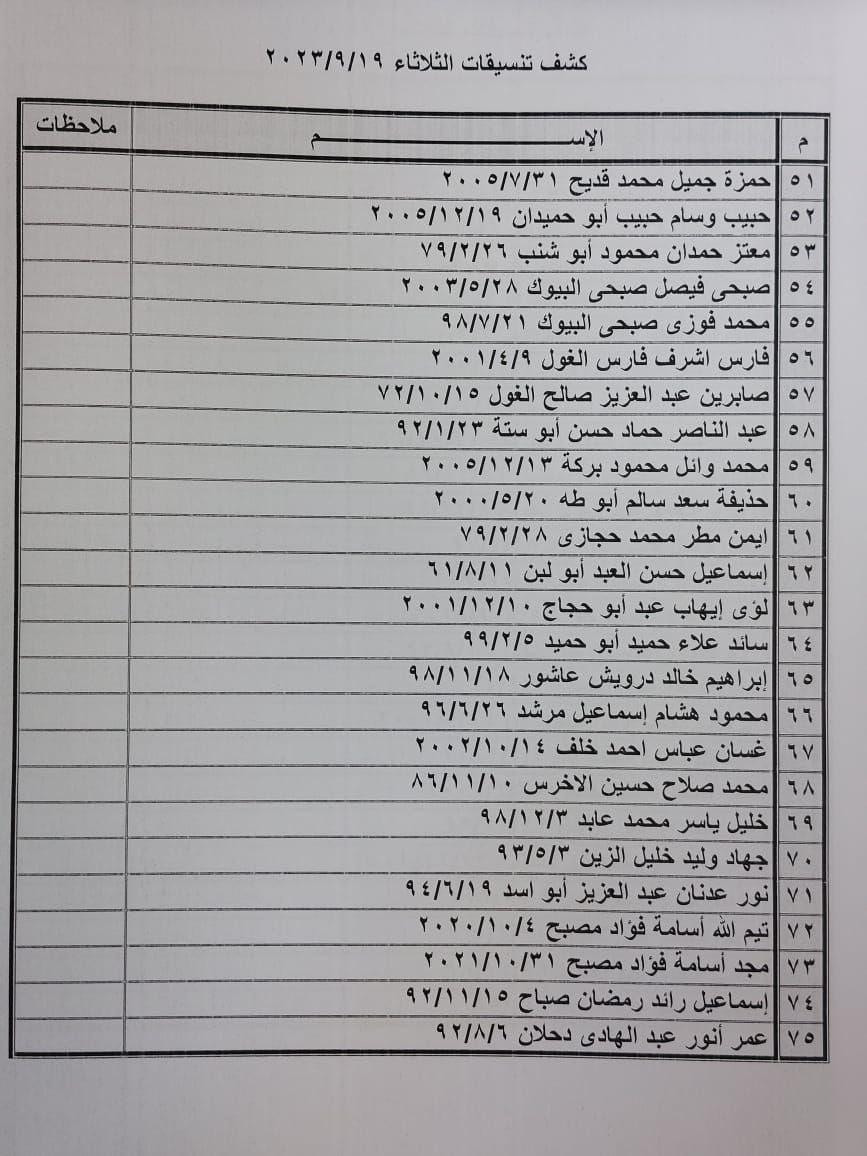 كشف تنسيقات الثلاثاء ٢٠٢٣/٩/١٩
م الإســــــــم ملاحظات
٥١ حمزة جميل محمد قديح ٢٠٠٥/٧/٣١
٥٢ حبيب وسام حبيب أبو حميدان ٢٠٠٥/١٢/١٩
٥٣ معتز حمدان محمود أبو شنب ٧٩/٢/٢٦
٥٤ صبحى فيصل صبحى البيوك ٢٠٠٣/٥/٢٨
٥٥ محمد فوزى صبحى البيوك ٩٨/٧/٢١
٥٦ فارس اشرف فارس الغول ٢٠٠١/٤/٩
٥٧ صابرين عبد العزيز صالح الغول ٧٢/١٠/١٥
٥٨ عبد الناصر حماد حسن أبو ستة ٩٢/١/٢٣
٥٩ محمد وائل محمود بركة ٢٠٠٥/١٢/١٣
٦٠ حذيفة سعد سالم أبو طه ٢٠٠٠/٥/٢٠
٦١ ايمن مطر محمد حجازى ٧٩/٢/٢٨
٦٢ إسماعيل حسن العبد أبو لبن ٦١/٨/١١
٦٣ لؤى إيهاب عبد أبو حجاج ٢٠٠١/١٢/١٠
٦٤ سائد علاء حميد أبو حميد ٩٩/٢/٥
٦٥ إبراهيم خالد درويش عاشور ٩٨/١١/١٨
٦٦ محمود هشام إسماعيل مرشد ٩٦/٦/٢٦
٦٧ غسان عباس احمد خلف ٢٠٠٢/١٠/١٤
٦٨ محمد صلاح حسين الاخرس ٨٦/١١/١٠
٦٩ خليل ياسر محمد عابد ٩٨/١٢/٣
٧٠ جهاد وليد خليل الزين ٩٣/٥/٣
٧١ نور عدنان عبد العزيز أبو اسد ٩٤/٦/١٩
٧٢ تيم الله أسامة فؤاد مصبح ٢٠٢٠/١٠/٤
٧٣ مجد أسامة فؤاد مصبح ٢٠٢١/١٠/٣١
٧٤ إسماعيل رائد رمضان صباح ٩٢/١١/١٥
٧٥ عمر أنور عبد الهادى دحلان ٩٢/٨/٦